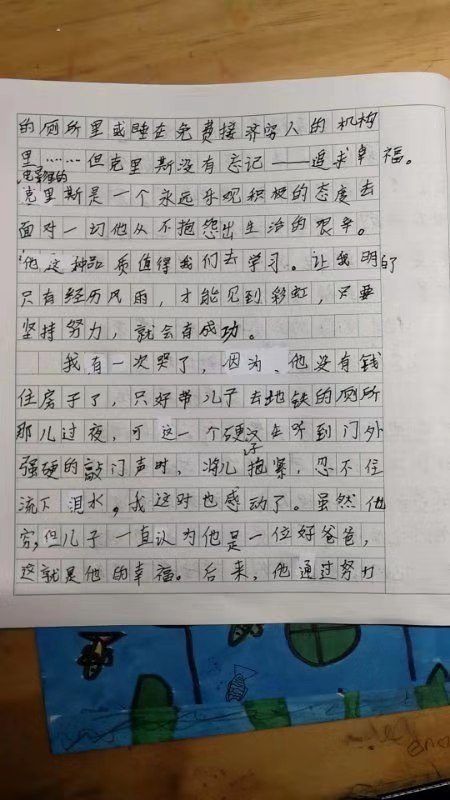 的厕所里或睡在免费接济穷人的机构
里……但克里斯没有忘记——追求幸福。
电影里的
克里斯是一个永远乐观积极的态度去
面对一切他从不抱怨出生活的艰辛。
他这种品质值得我们去学习。让我明白了
只有经历风雨，才能见到彩虹，只要
坚持努力，就会有成功。
我有一次哭了，因为、他没有钱
住房子了，只好带儿子去地铁的厕所
那儿过夜，可这一个硬汉子在听到门外
强硬的敲门声时，将儿抱紧，忍不住
流下泪水，我这时也感动了。虽然他
穷，但儿子一直认为他是一位好爸爸，
这就是他的幸福。后来，他通过努力